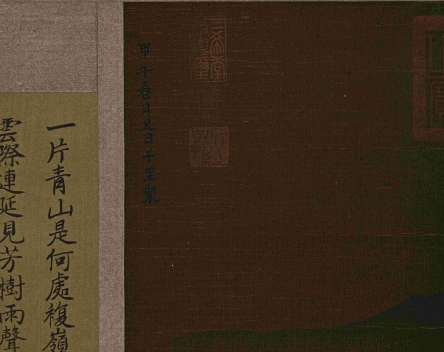 三希堂
甲子春月五日千里
一片青山是何處複嶺
雲際連延見芳樹雨聲